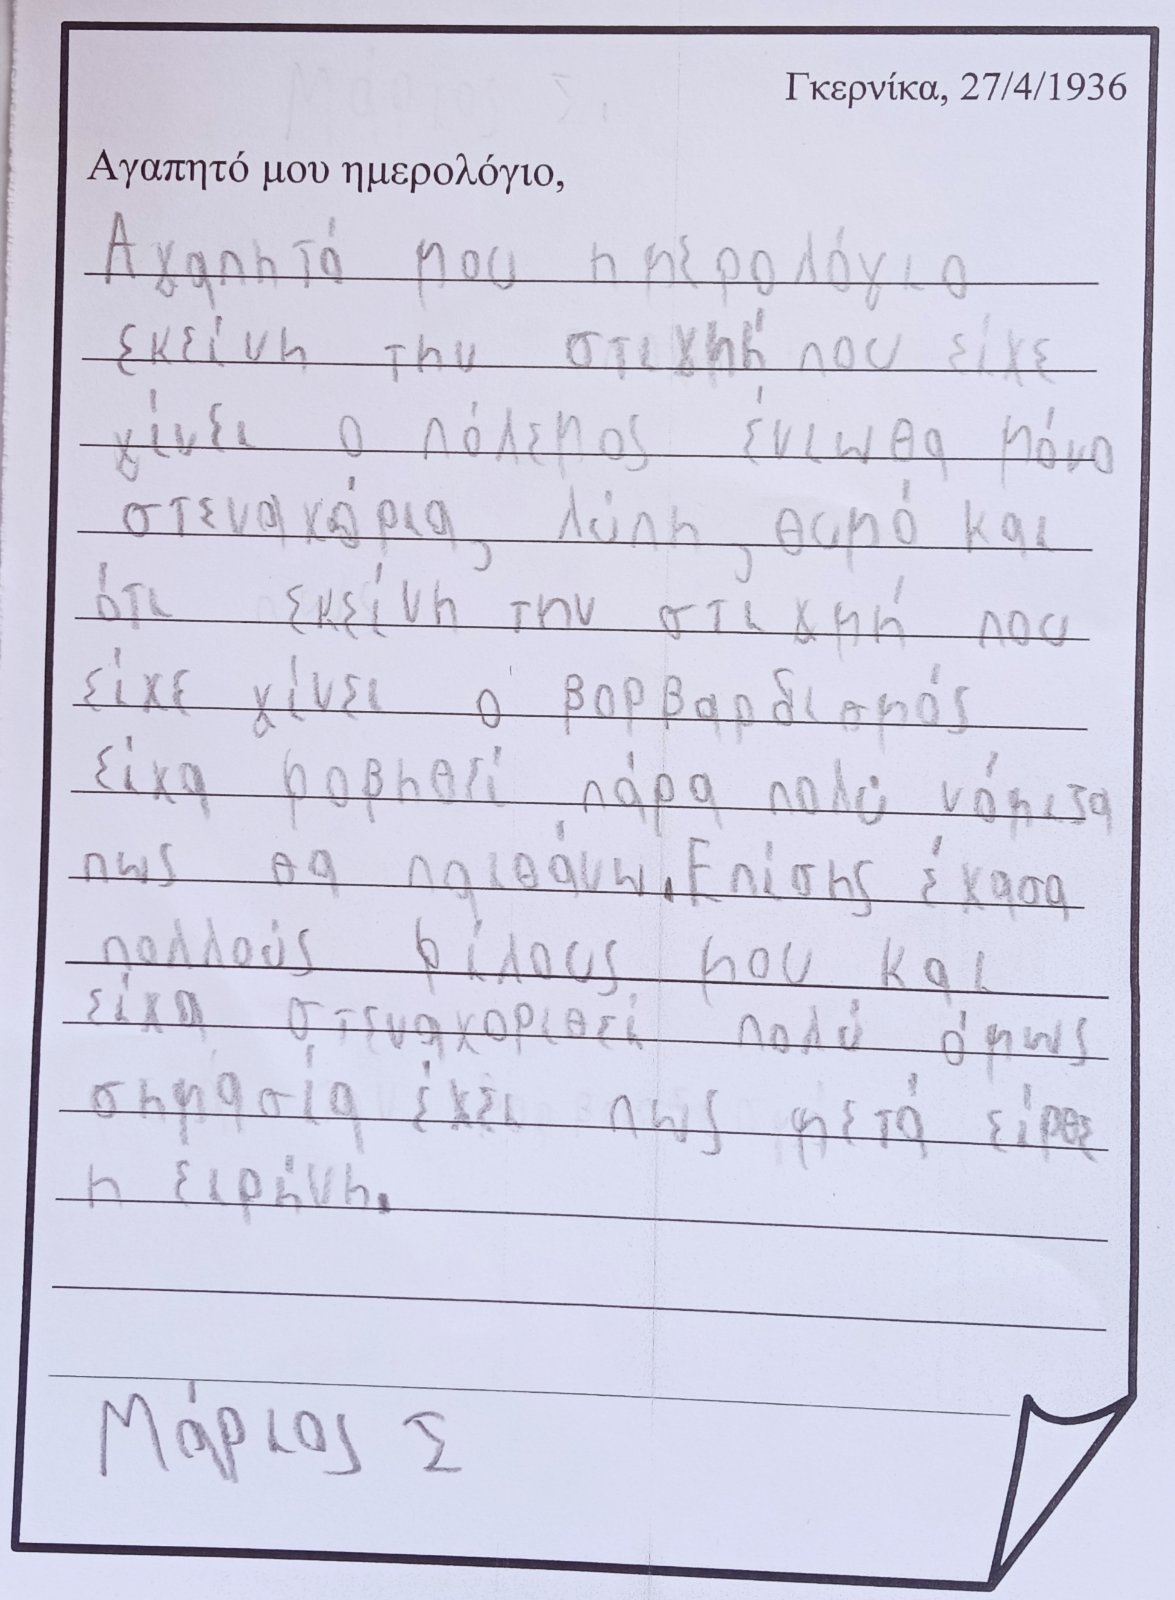 Γκερνίκα, 27/4/1936
Αγαπητό μου ημερολόγιο,
Αγαπητό μου ημερολόγιο
εκείνη την στιγμή που είχε
γίνει ο πόλεμος ένιωθα μόνο
στεναχόρια, λύπη, θυμό και
ότι εκείνη την στιγμή που
είχε γίνει ο βορβαρδισμός
είχα φοβηθεί πάρα πολύ νόμιζα
πως θα παιθάνω. Επίσης έχασα
πολλούς φίλους μου και
είχα στεναχοριθεί πολύ όμως
σημασία έχει πως μετά είρθε
η ειρήνη.
Μάριος Σ